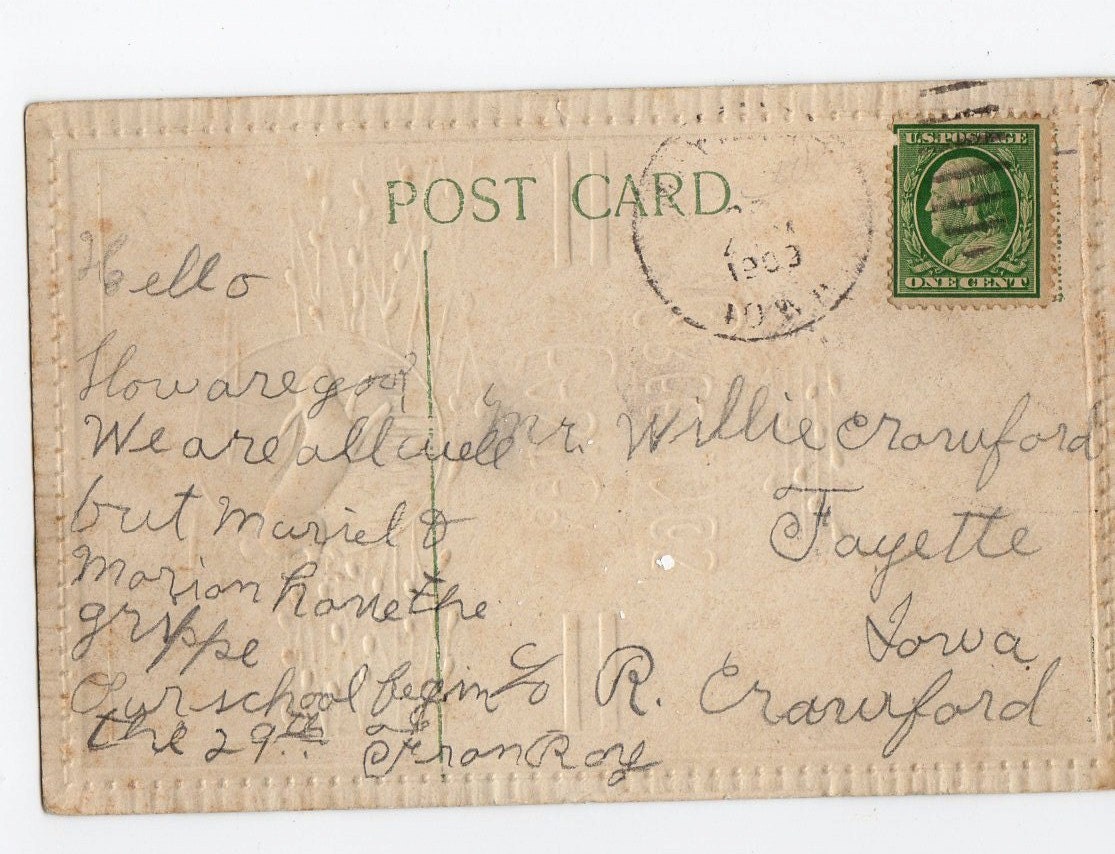 POST CARD
U.S. POSTAGE
ONE CENT
1909
IOWA
Hello
How are you
We are all well
but Muriel &
Marion have the
grippe
Our school begin
the 29th. From Roy
Mr. Willie Crawford
Fayette
Iowa
R. Crawford